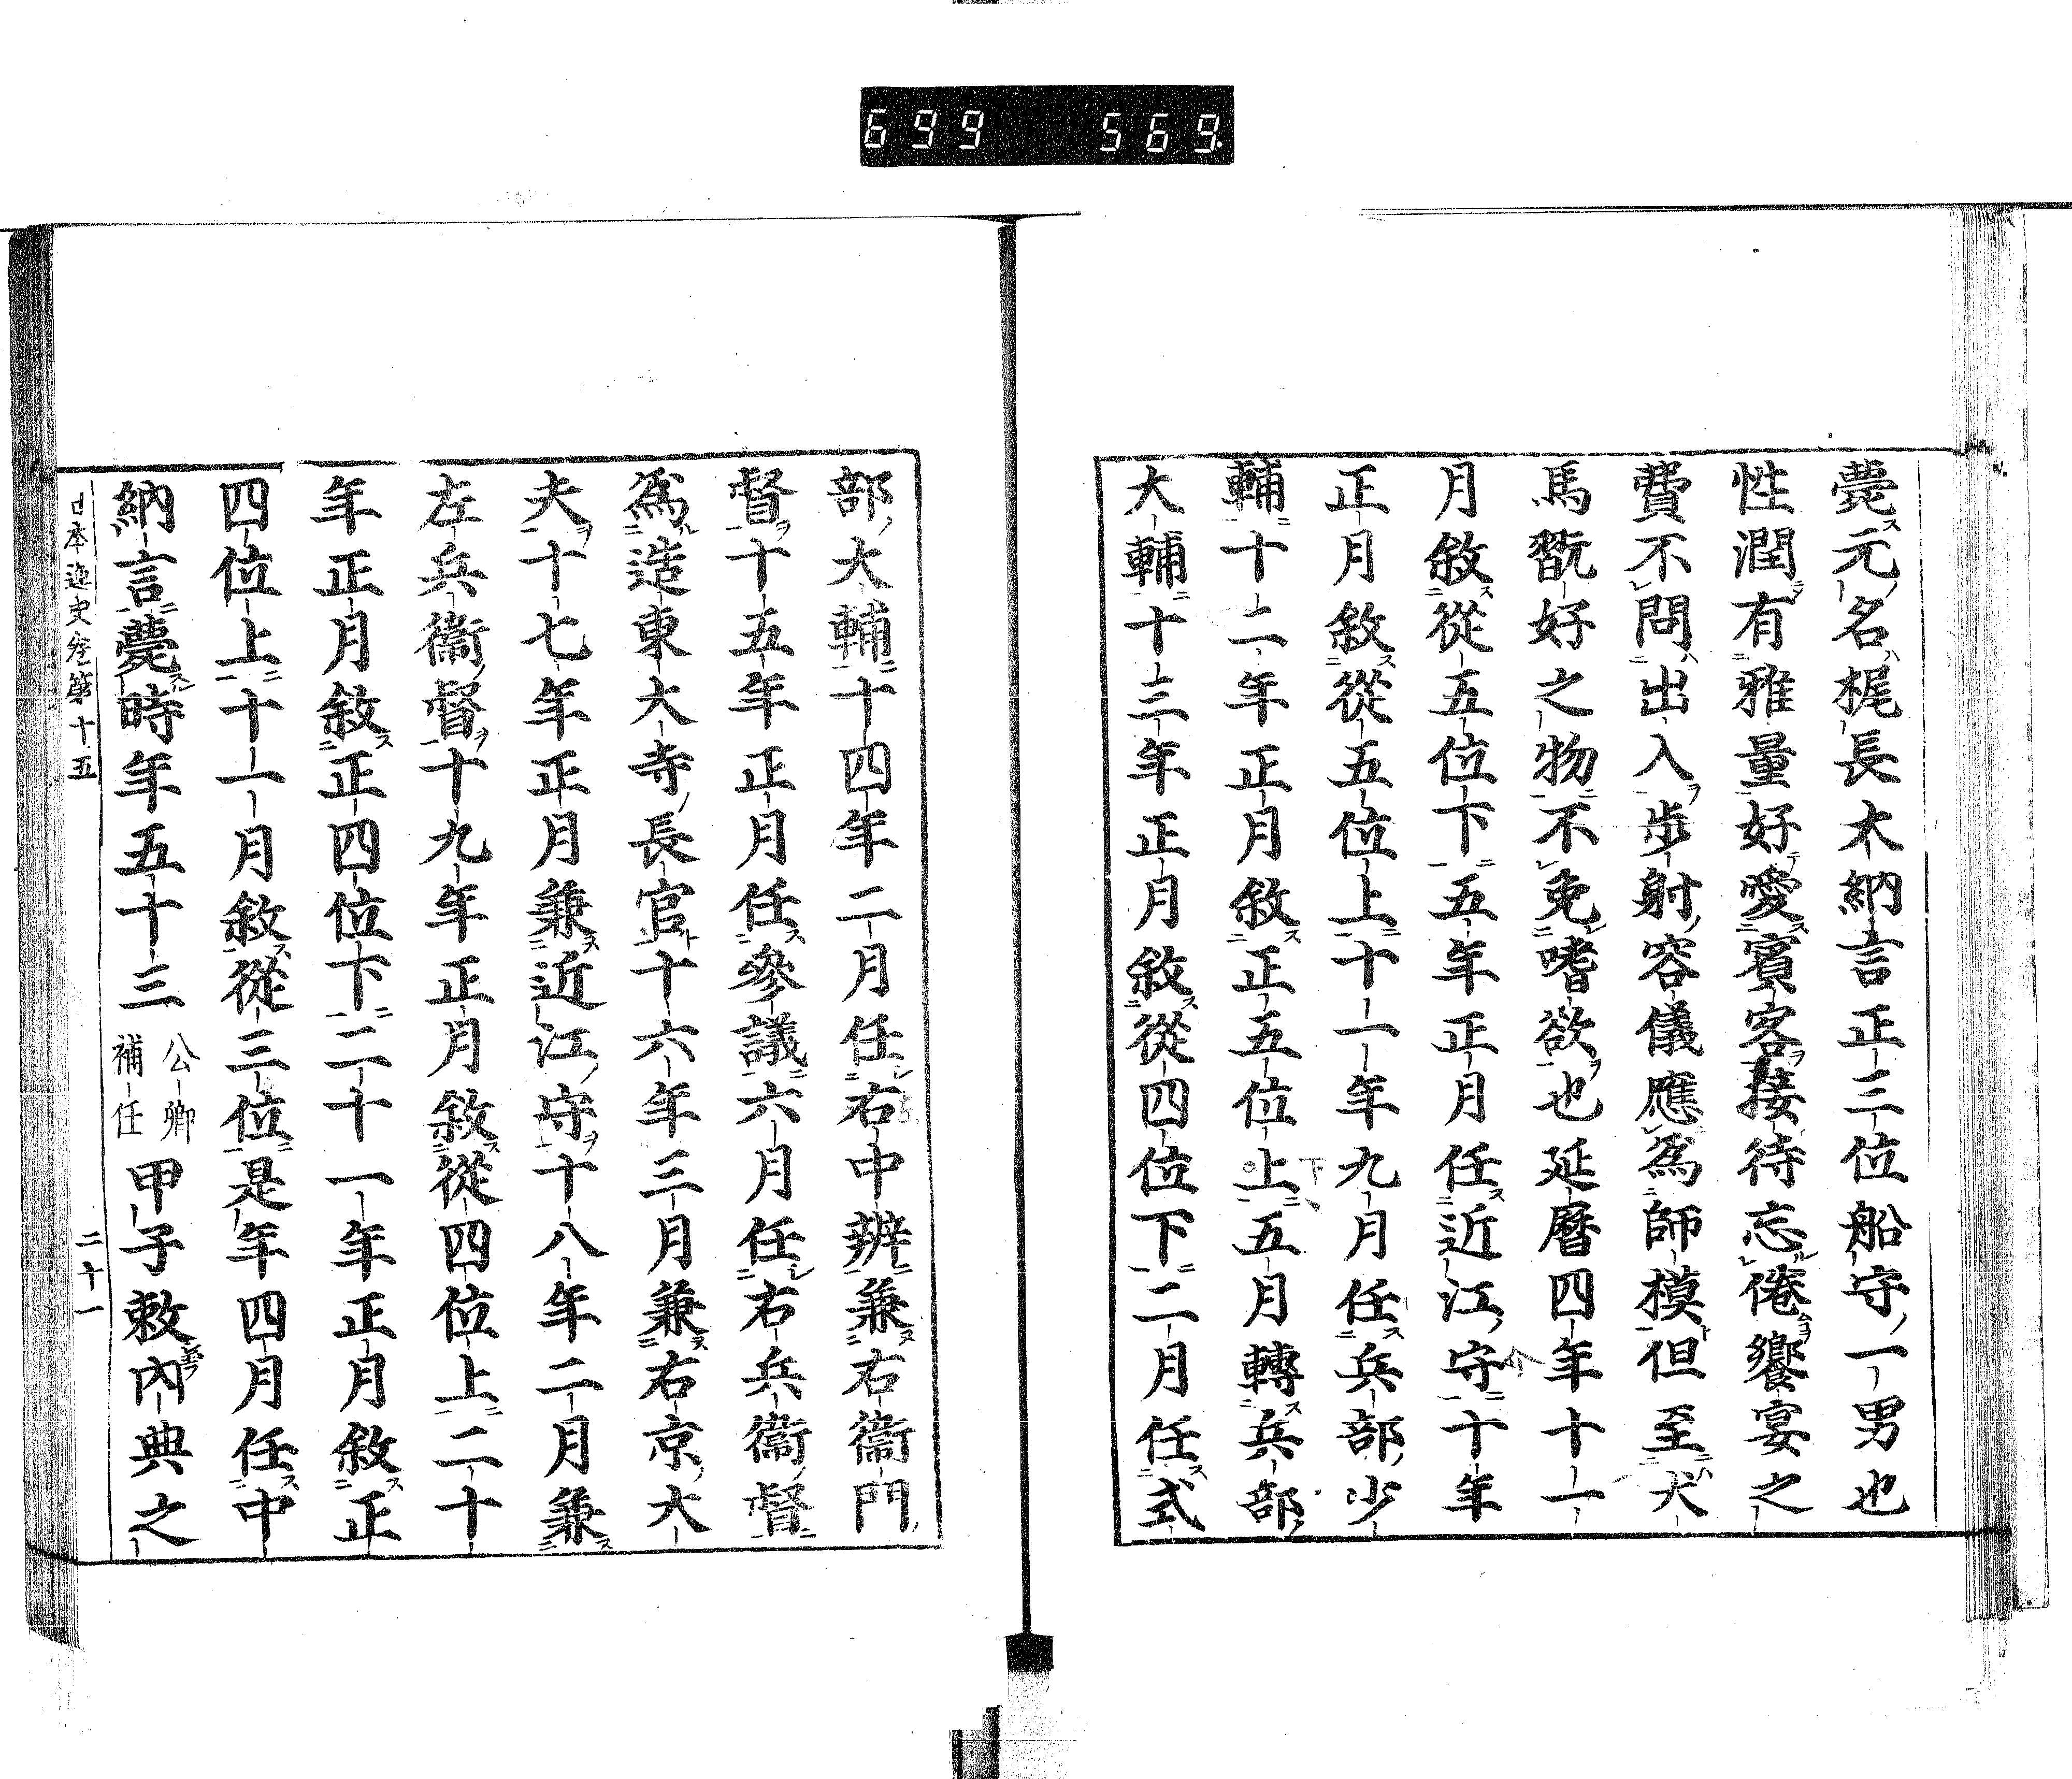 699 569
薨元名梶長大納言正三位船守一男也
性潤有雅量好愛賓客接待忘倦饗宴之
費不問出入歩射容儀應爲師模但至犬
馬翫好之物不免嗜欲也延曆四年十一
月敘從五位下五年正月任近江守十年
正月敘從五位上十一年九月任兵部少
輔十二年正月敘正五位上五月轉兵部
大輔十三年正月敘從四位下二月任式
部大輔十四年二月任右中辨兼右衞門
督十五年正月任參議六月任右兵衞督
爲造東大寺長官十六年三月兼右京大
夫十七年正月兼近江守十八年二月兼
左兵衞督十九年正月敘從四位上二十
年正月敘正四位下二十一年正月敘正
四位上十一月敘從三位是年四月任中
納言薨時年五十三公卿補任甲子敕內典之
日本逸史卷第十五 二十一